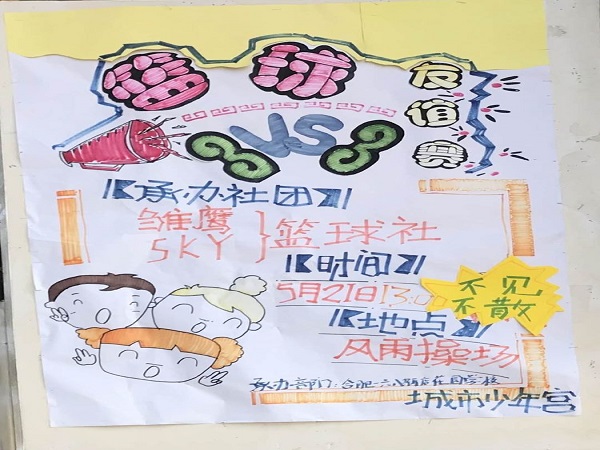 篮球友谊赛
3VS3
承办社团
雏鹰
SKY
篮球社
时间
5月21日13:00
不见
不散
地点
风雨操场
承办部门:合肥
学校
城市少年宫